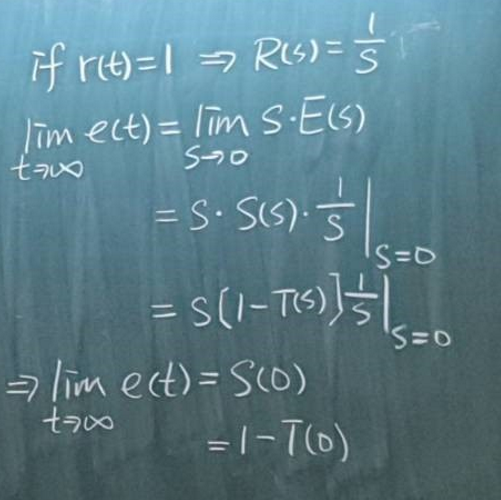 if r(t)=1 ⇒ R(s)=1/S
lim e(t)= lim S·E(s)
t→∞ S→0
=S·S(s)·1/S|S=0
=S[1-T(s)]1/S|S=0
⇒ lim e(t)=S(0)
t→∞
=1-T(0)